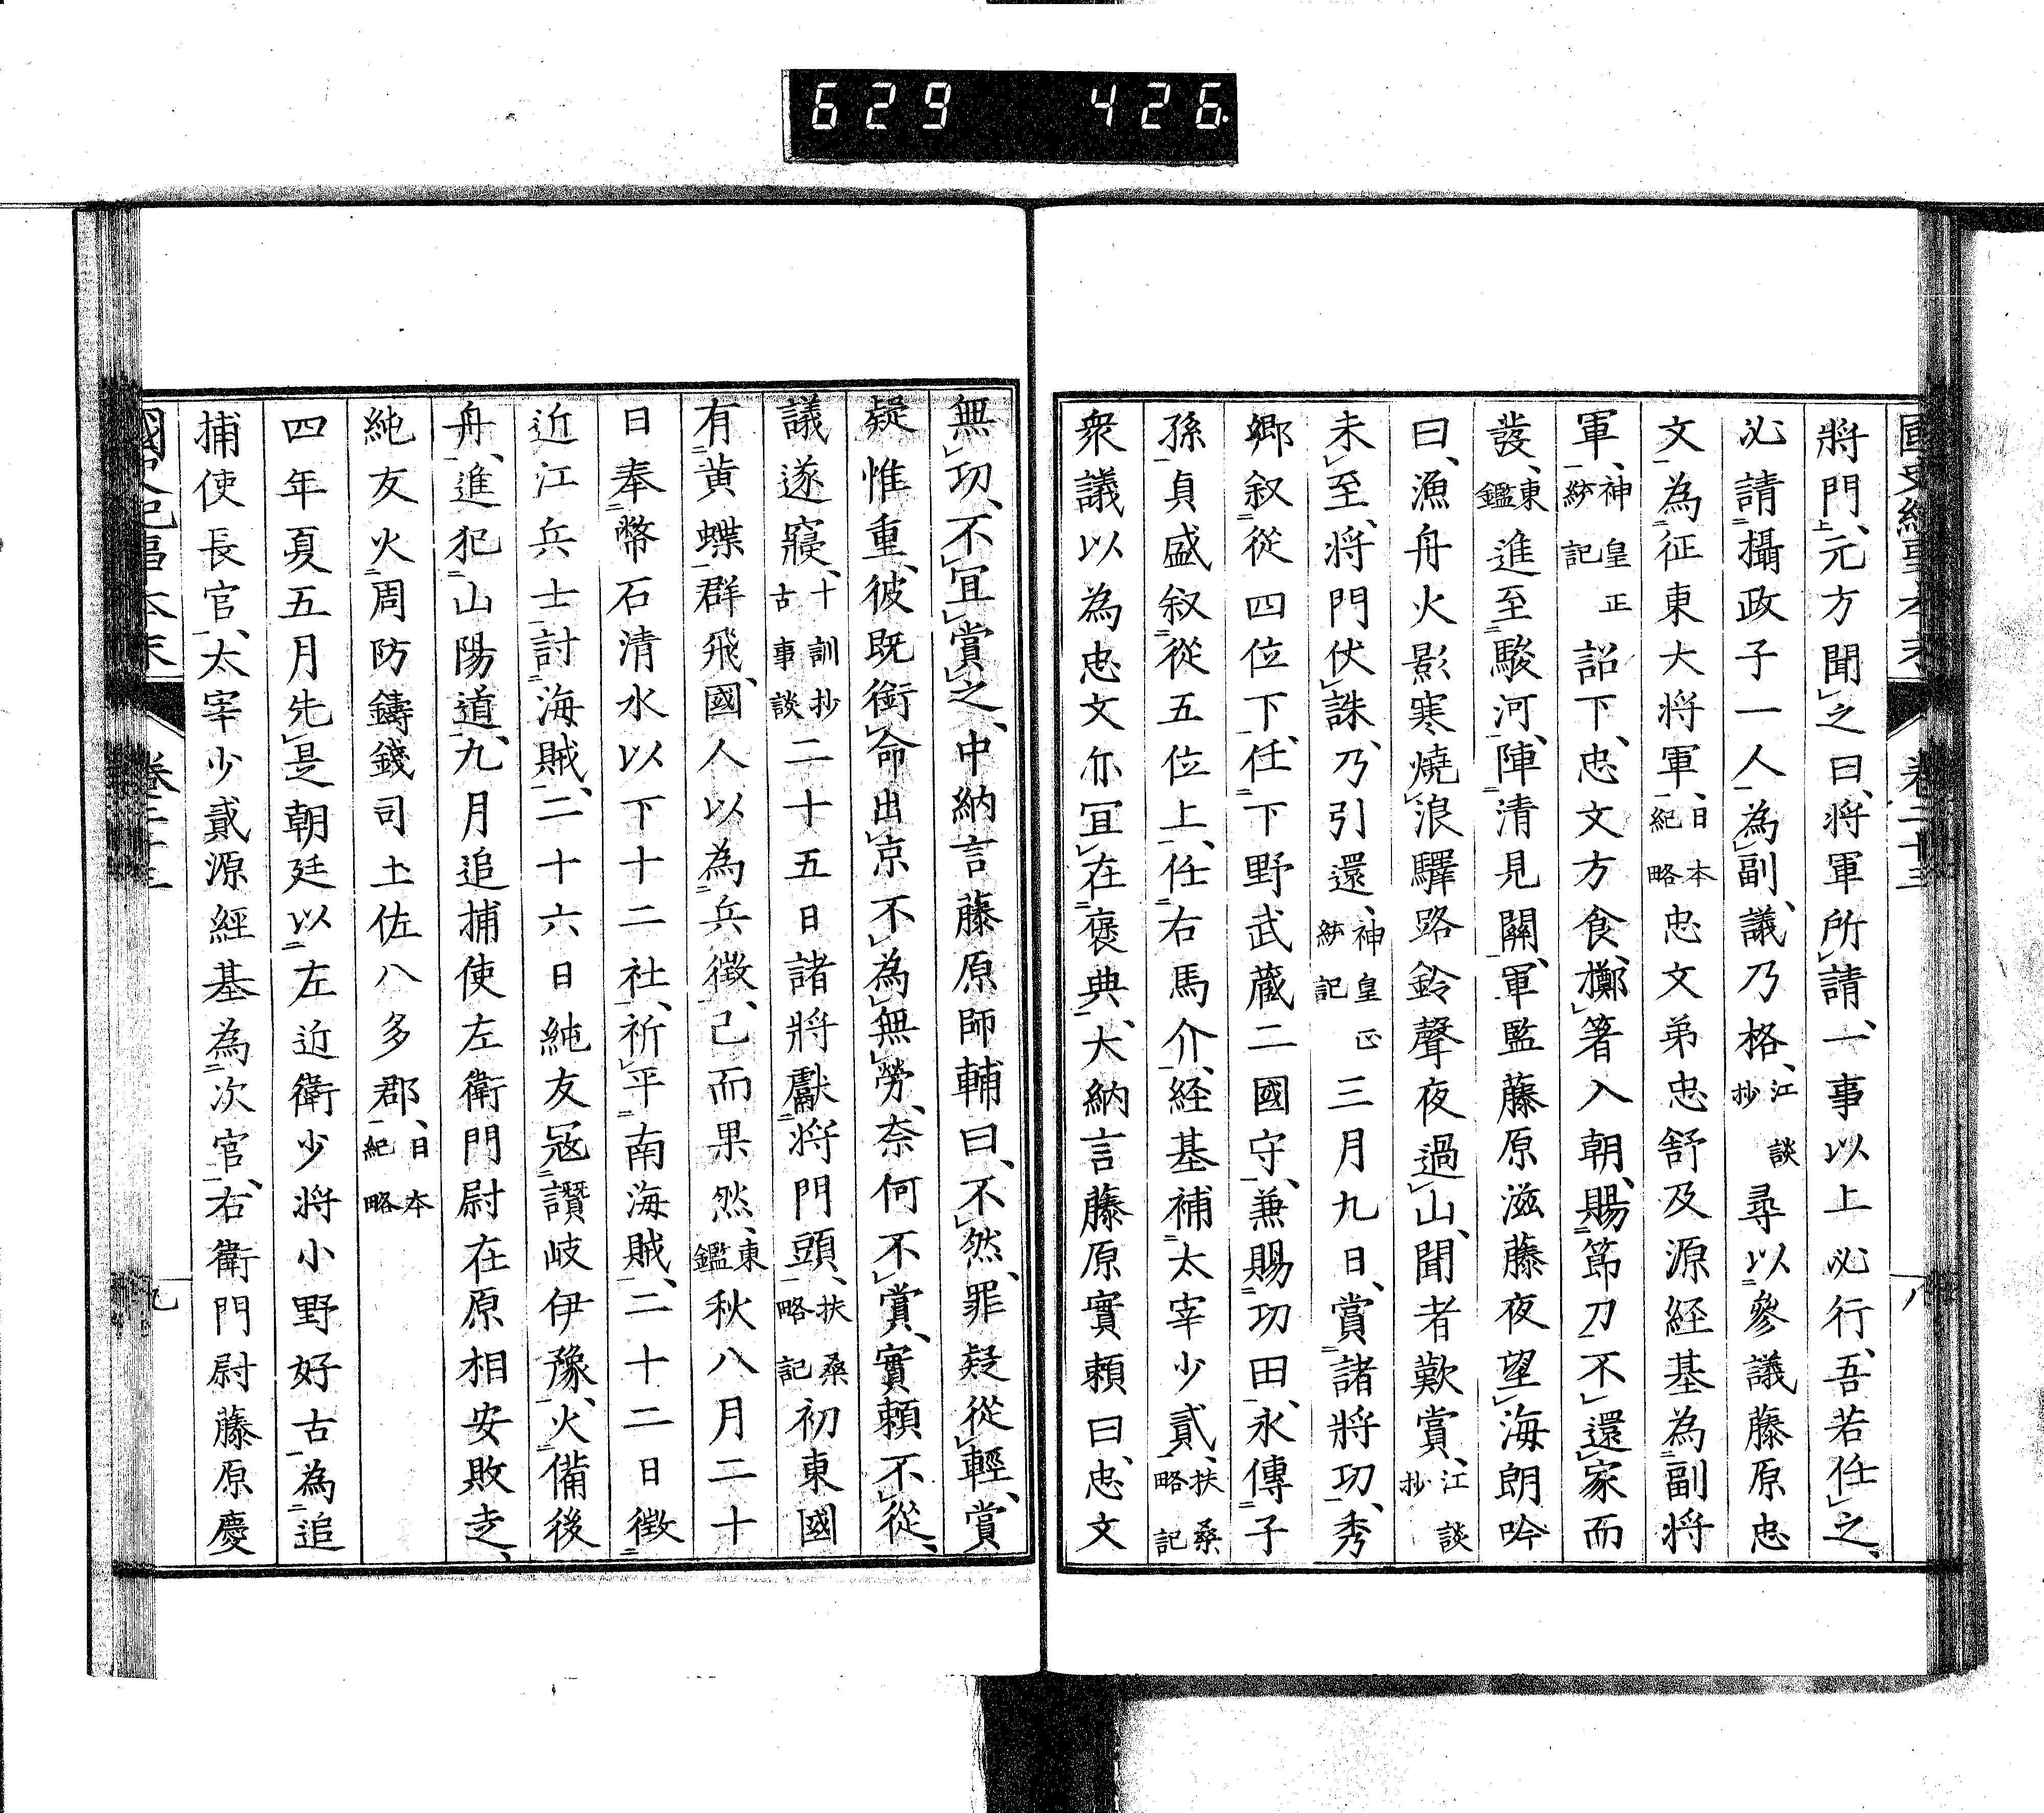 629 426
國史紀事本末 卷二十三 八
將門、元方聞之曰、将軍所請、一事以上必行、吾若任之、
必請攝政子一人為副、議乃格、江談抄尋以參議藤原忠
文為征東大将軍、日本紀略忠文弟忠舒及源経基為副将
軍、神皇正統記詔下、忠文方食、擲箸入朝、賜節刀不還家而
發、東鑑進至駿河、陣清見關、軍監藤原滋藤夜望海朗吟
曰、漁舟火影寒燒浪驛路鈴聲夜過山、聞者歎賞、江談抄
未至、将門伏誅、乃引還、神皇正統記三月九日、賞諸将功、秀
郷叙從四位下、任下野武蔵二國守、兼賜功田、永傳子
孫貞盛叙從五位上、任右馬介、経基補太宰少貳、扶桑略記
衆議以為忠文亦宜在褒典、大納言藤原實頼曰、忠文
無功、不宜賞之、中納言藤原師輔曰、不然、罪疑從輕、賞
疑惟重、彼既銜命出京不為無勞、奈何不賞、實頼不從、
議遂寢、十訓抄古事談二十五日諸將獻将門頭、扶桑略記初東國
有黄蝶群飛、國人以為兵徴、己而果然、東鑑秋八月二十
日奉幣石清水以下十二社、祈平南海賊、二十二日徴
近江兵士討海賊、二十六日純友寇讃岐伊豫、火備後
舟、進犯山陽道、九月追捕使左衛門尉在原相安敗走、
純友火周防鑄錢司土佐八多郡、日本紀略
四年夏五月先是朝廷以左近衛少将小野好古為追
捕使長官、太宰少貳源經基為次官、右衛門尉藤原慶
國史紀事本末 卷二十三 九